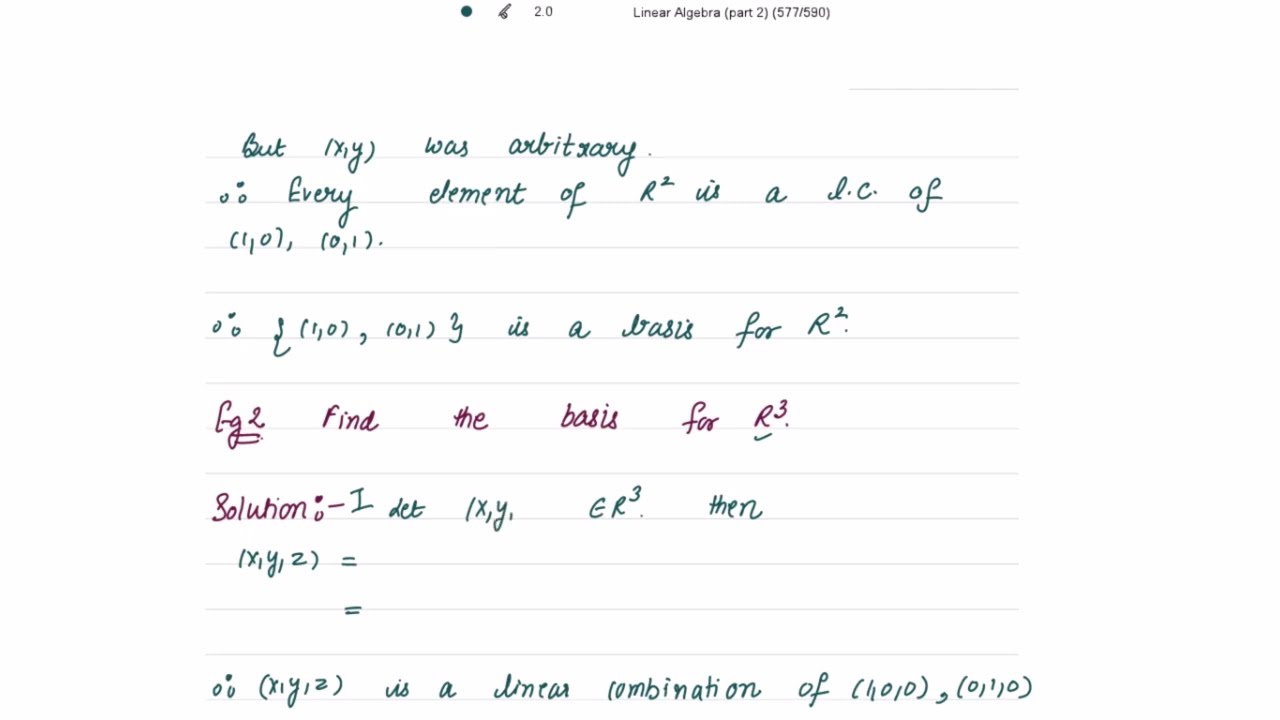 2.0 Linear Algebra (part 2) (577/590)
But (x,y) was arbitrary.
∴ Every element of R² is a l.c. of
(1,0), (0,1).
∴ {(1,0), (0,1)} is a basis for R².
Eg2 Find the basis for R³.
Solution:- I Let (x,y, ∈ R³. then
(x,y,z) =
=
∴ (x,y,z) is a linear combination of (1,0,0), (0,1,0)